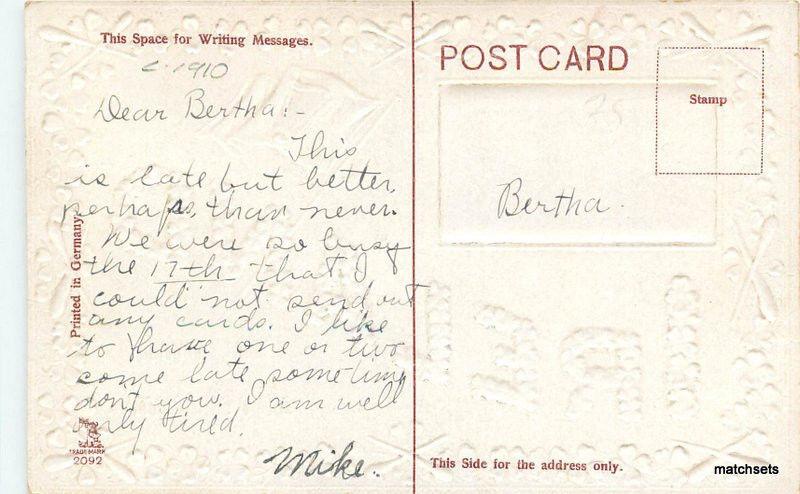 This Space for Writing Messages.
c. 1910
Dear Bertha:-
This
is late but better,
perhaps, than never.
We were so busy
the 17th that I
could not send out
any cards. I like
to have one or two
come late sometime
don't you. I am well
only tired.
Mike.
Printed in Germany
TRADE MARK
2092
POST CARD
Stamp
25
Bertha.
This Side for the address only.
matchsets